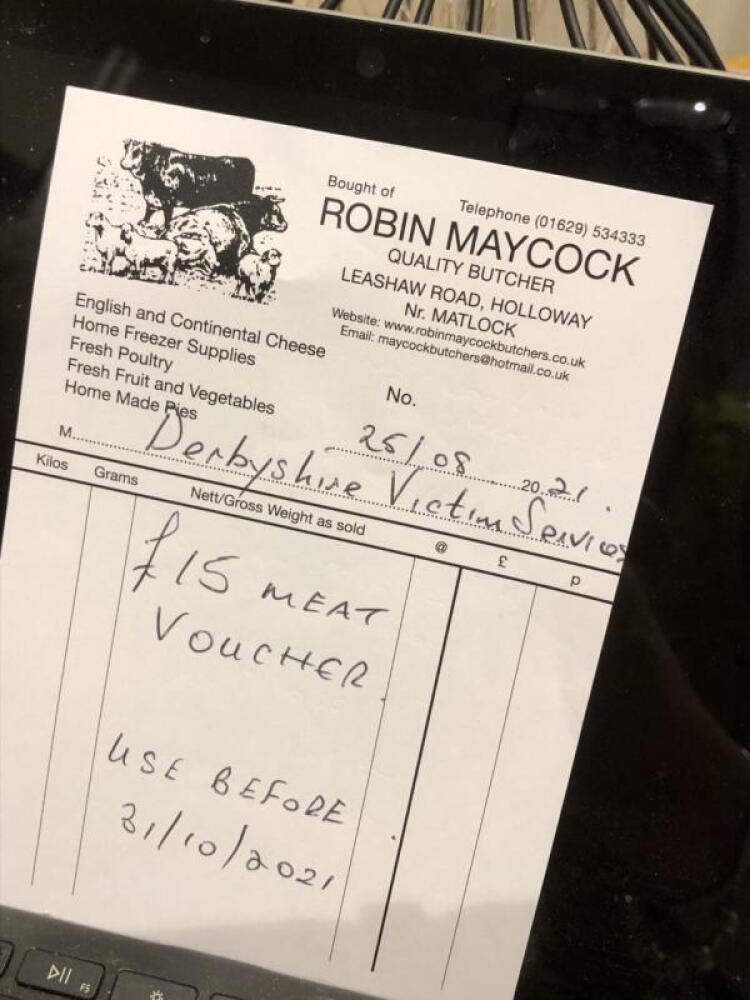 Bought of
Telephone (01629) 534333
ROBIN MAYCOCK
QUALITY BUTCHER
LEASHAW ROAD, HOLLOWAY
Nr. MATLOCK
Website: www.robinmaycockbutchers.co.uk
Email: maycockbutchers@hotmail.co.uk
English and Continental Cheese
Home Freezer Supplies
Fresh Poultry
Fresh Fruit and Vegetables
Home Made Pies
No.
25/08 2021.
M Derbyshire Victim Services
Kilos Grams Nett/Gross Weight as sold @ £ p
£15 MEAT
VOUCHER.
USE BEFORE
31/10/2021
F5